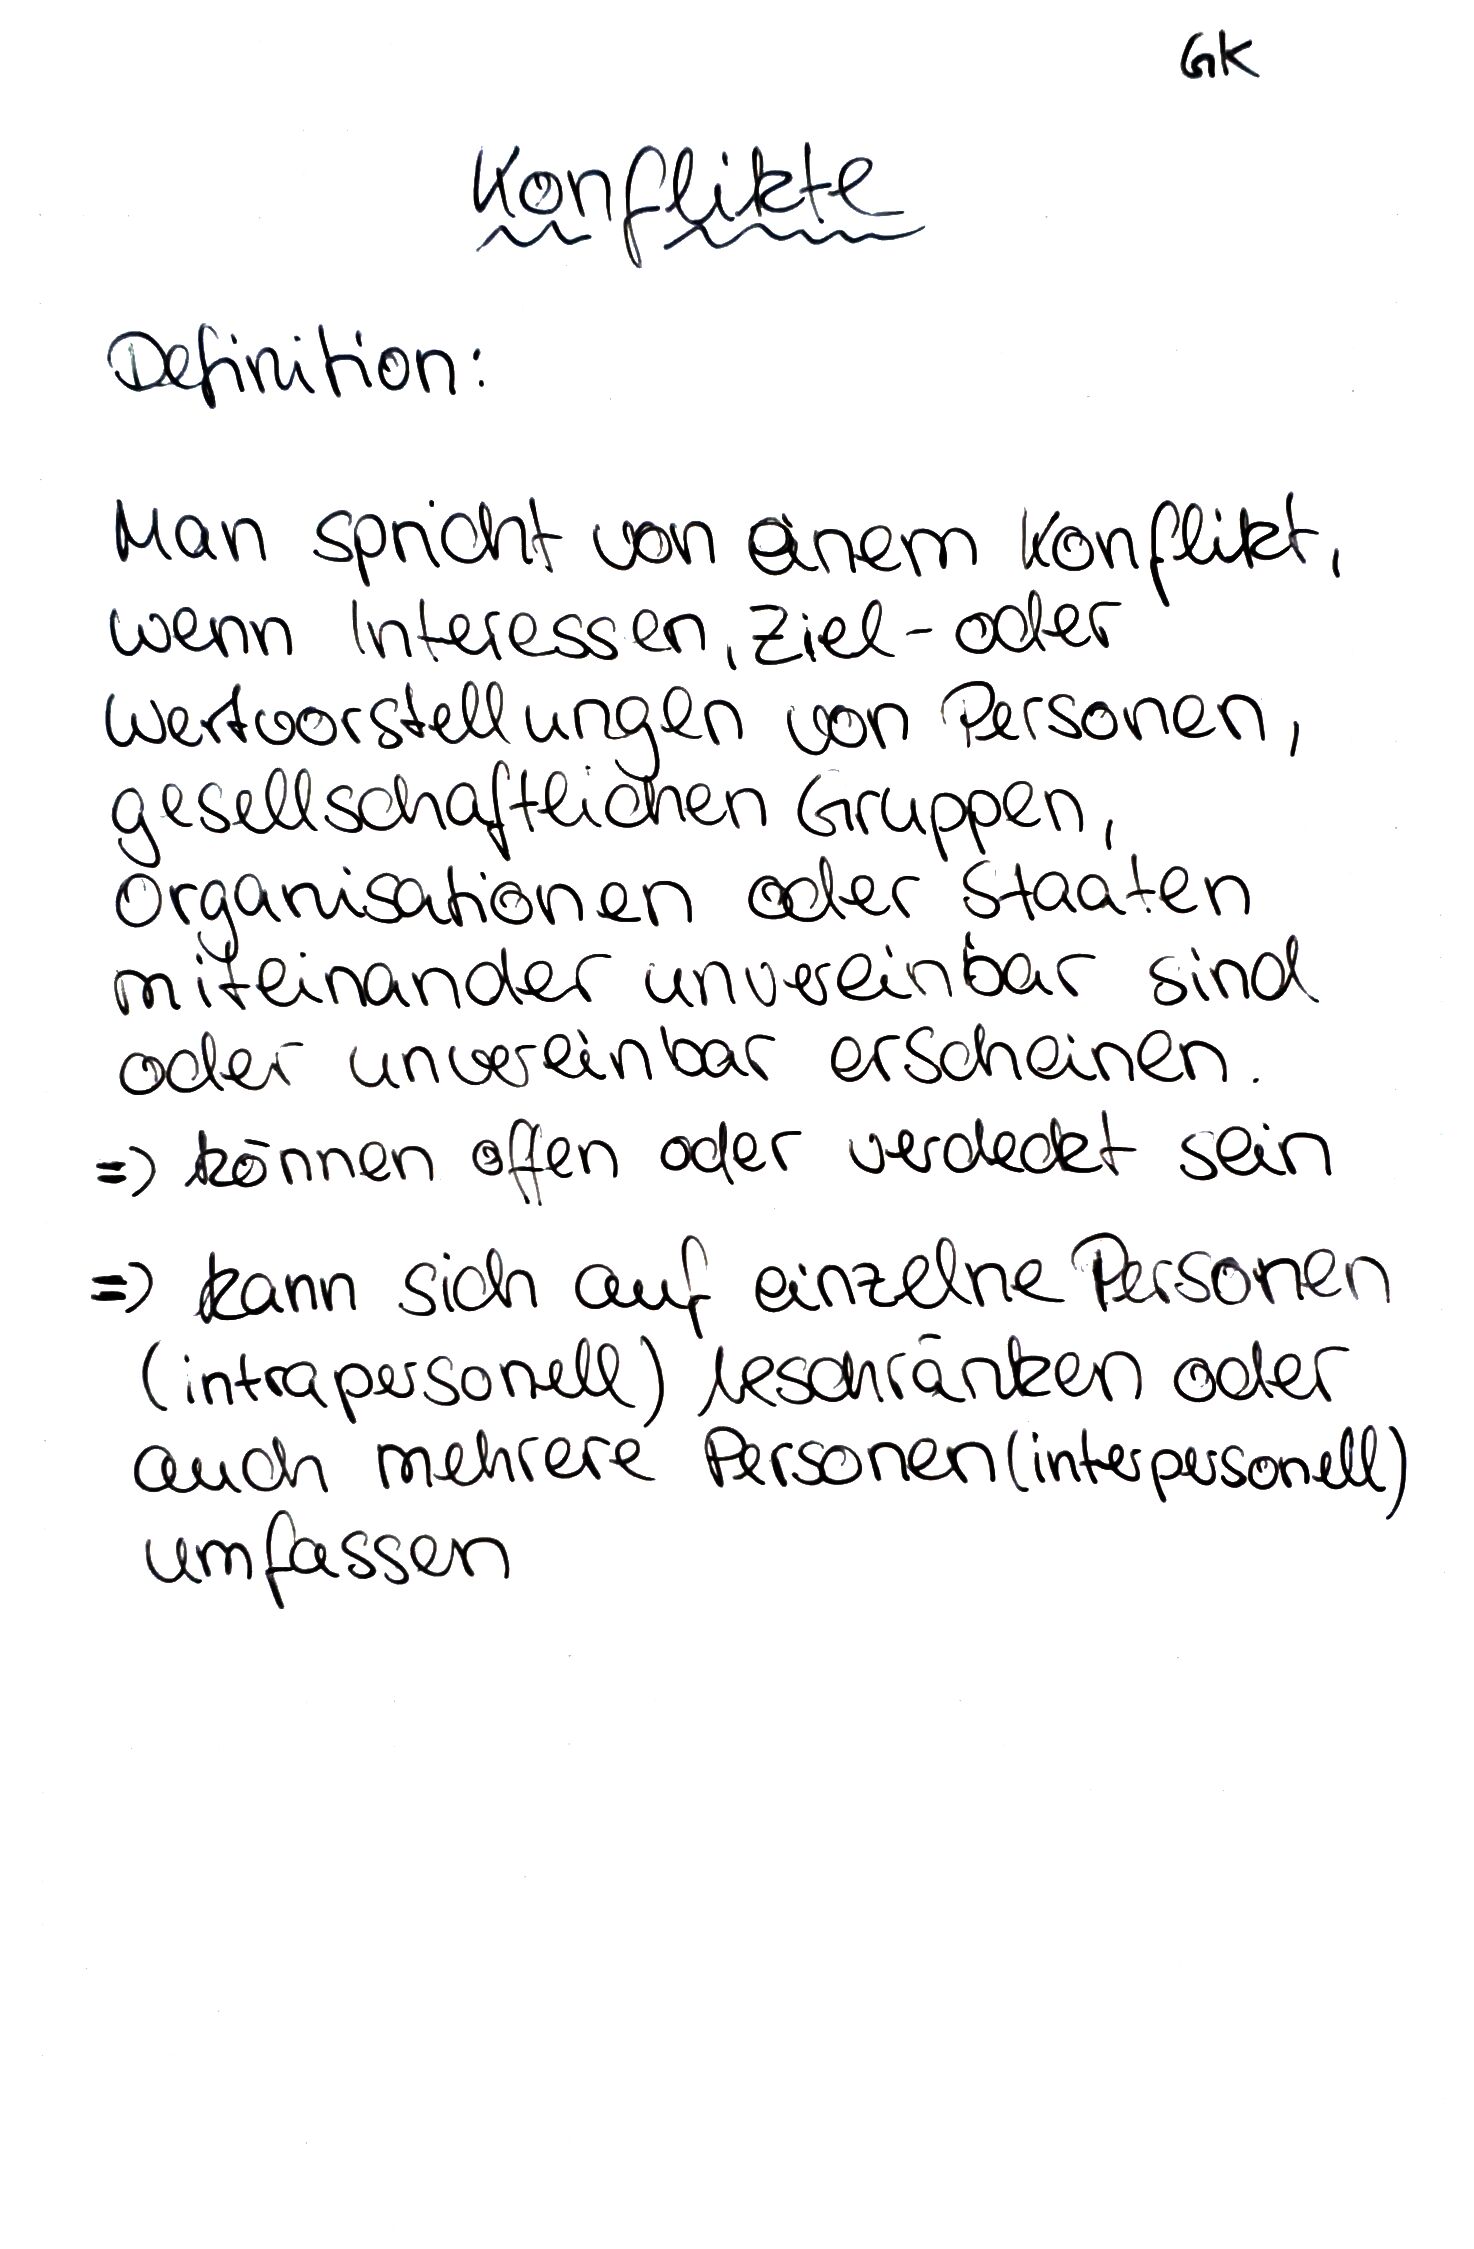 GK
Konflikte
Definition:
Man spricht von einem Konflikt,
wenn Interessen, Ziel- oder
Wertvorstellungen von Personen,
gesellschaftlichen Gruppen,
Organisationen oder Staaten
miteinander unvereinbar sind
oder unvereinbar erscheinen.
=> können offen oder verdeckt sein
=> kann sich auf einzelne Personen
(intrapersonell) beschränken oder
auch mehrere Personen (interpersonell)
umfassen